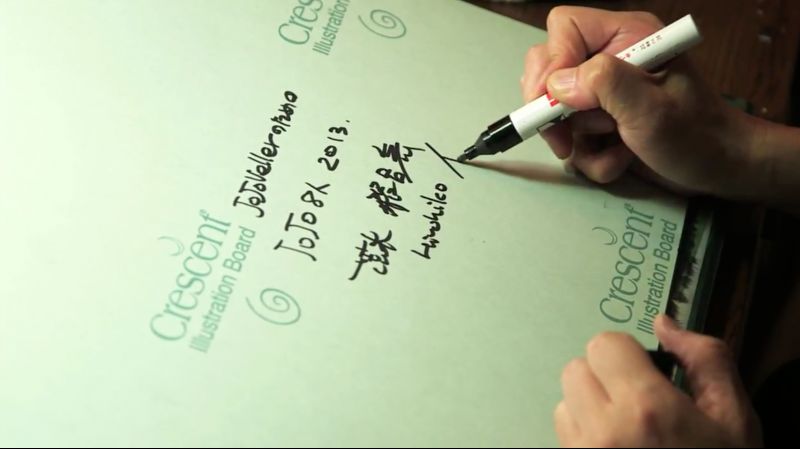 Crescent
Illustration Board
JOJO 8人 2013.
荒木 飛呂彦
Hirohiko
Crescent
Illustration Board
Crescent
Illustration Board